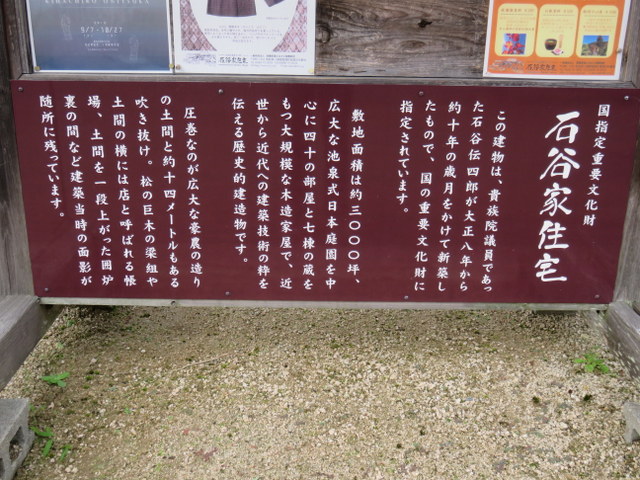 国指定重要文化財
石谷家住宅
この建物は、貴族院議員であっ
た石谷伝四郎が大正八年から
約十年の歳月をかけて新築し
たもので、国の重要文化財に
指定されています。
敷地面積は約三〇〇〇坪、
広大な池泉式日本庭園を中
心に四十の部屋と七棟の蔵を
もつ大規模な木造家屋で、近
世から近代への建築技術の粋を
伝える歴史的建造物です。
圧巻なのが広大な豪農の造り
の土間と約十四メートルもある
吹き抜け。松の巨木の梁組や
土間の横には店と呼ばれる帳
場、土間を一段上がった囲炉
裏の間など建築当時の面影が
随所に残っています。
9/7-10/27